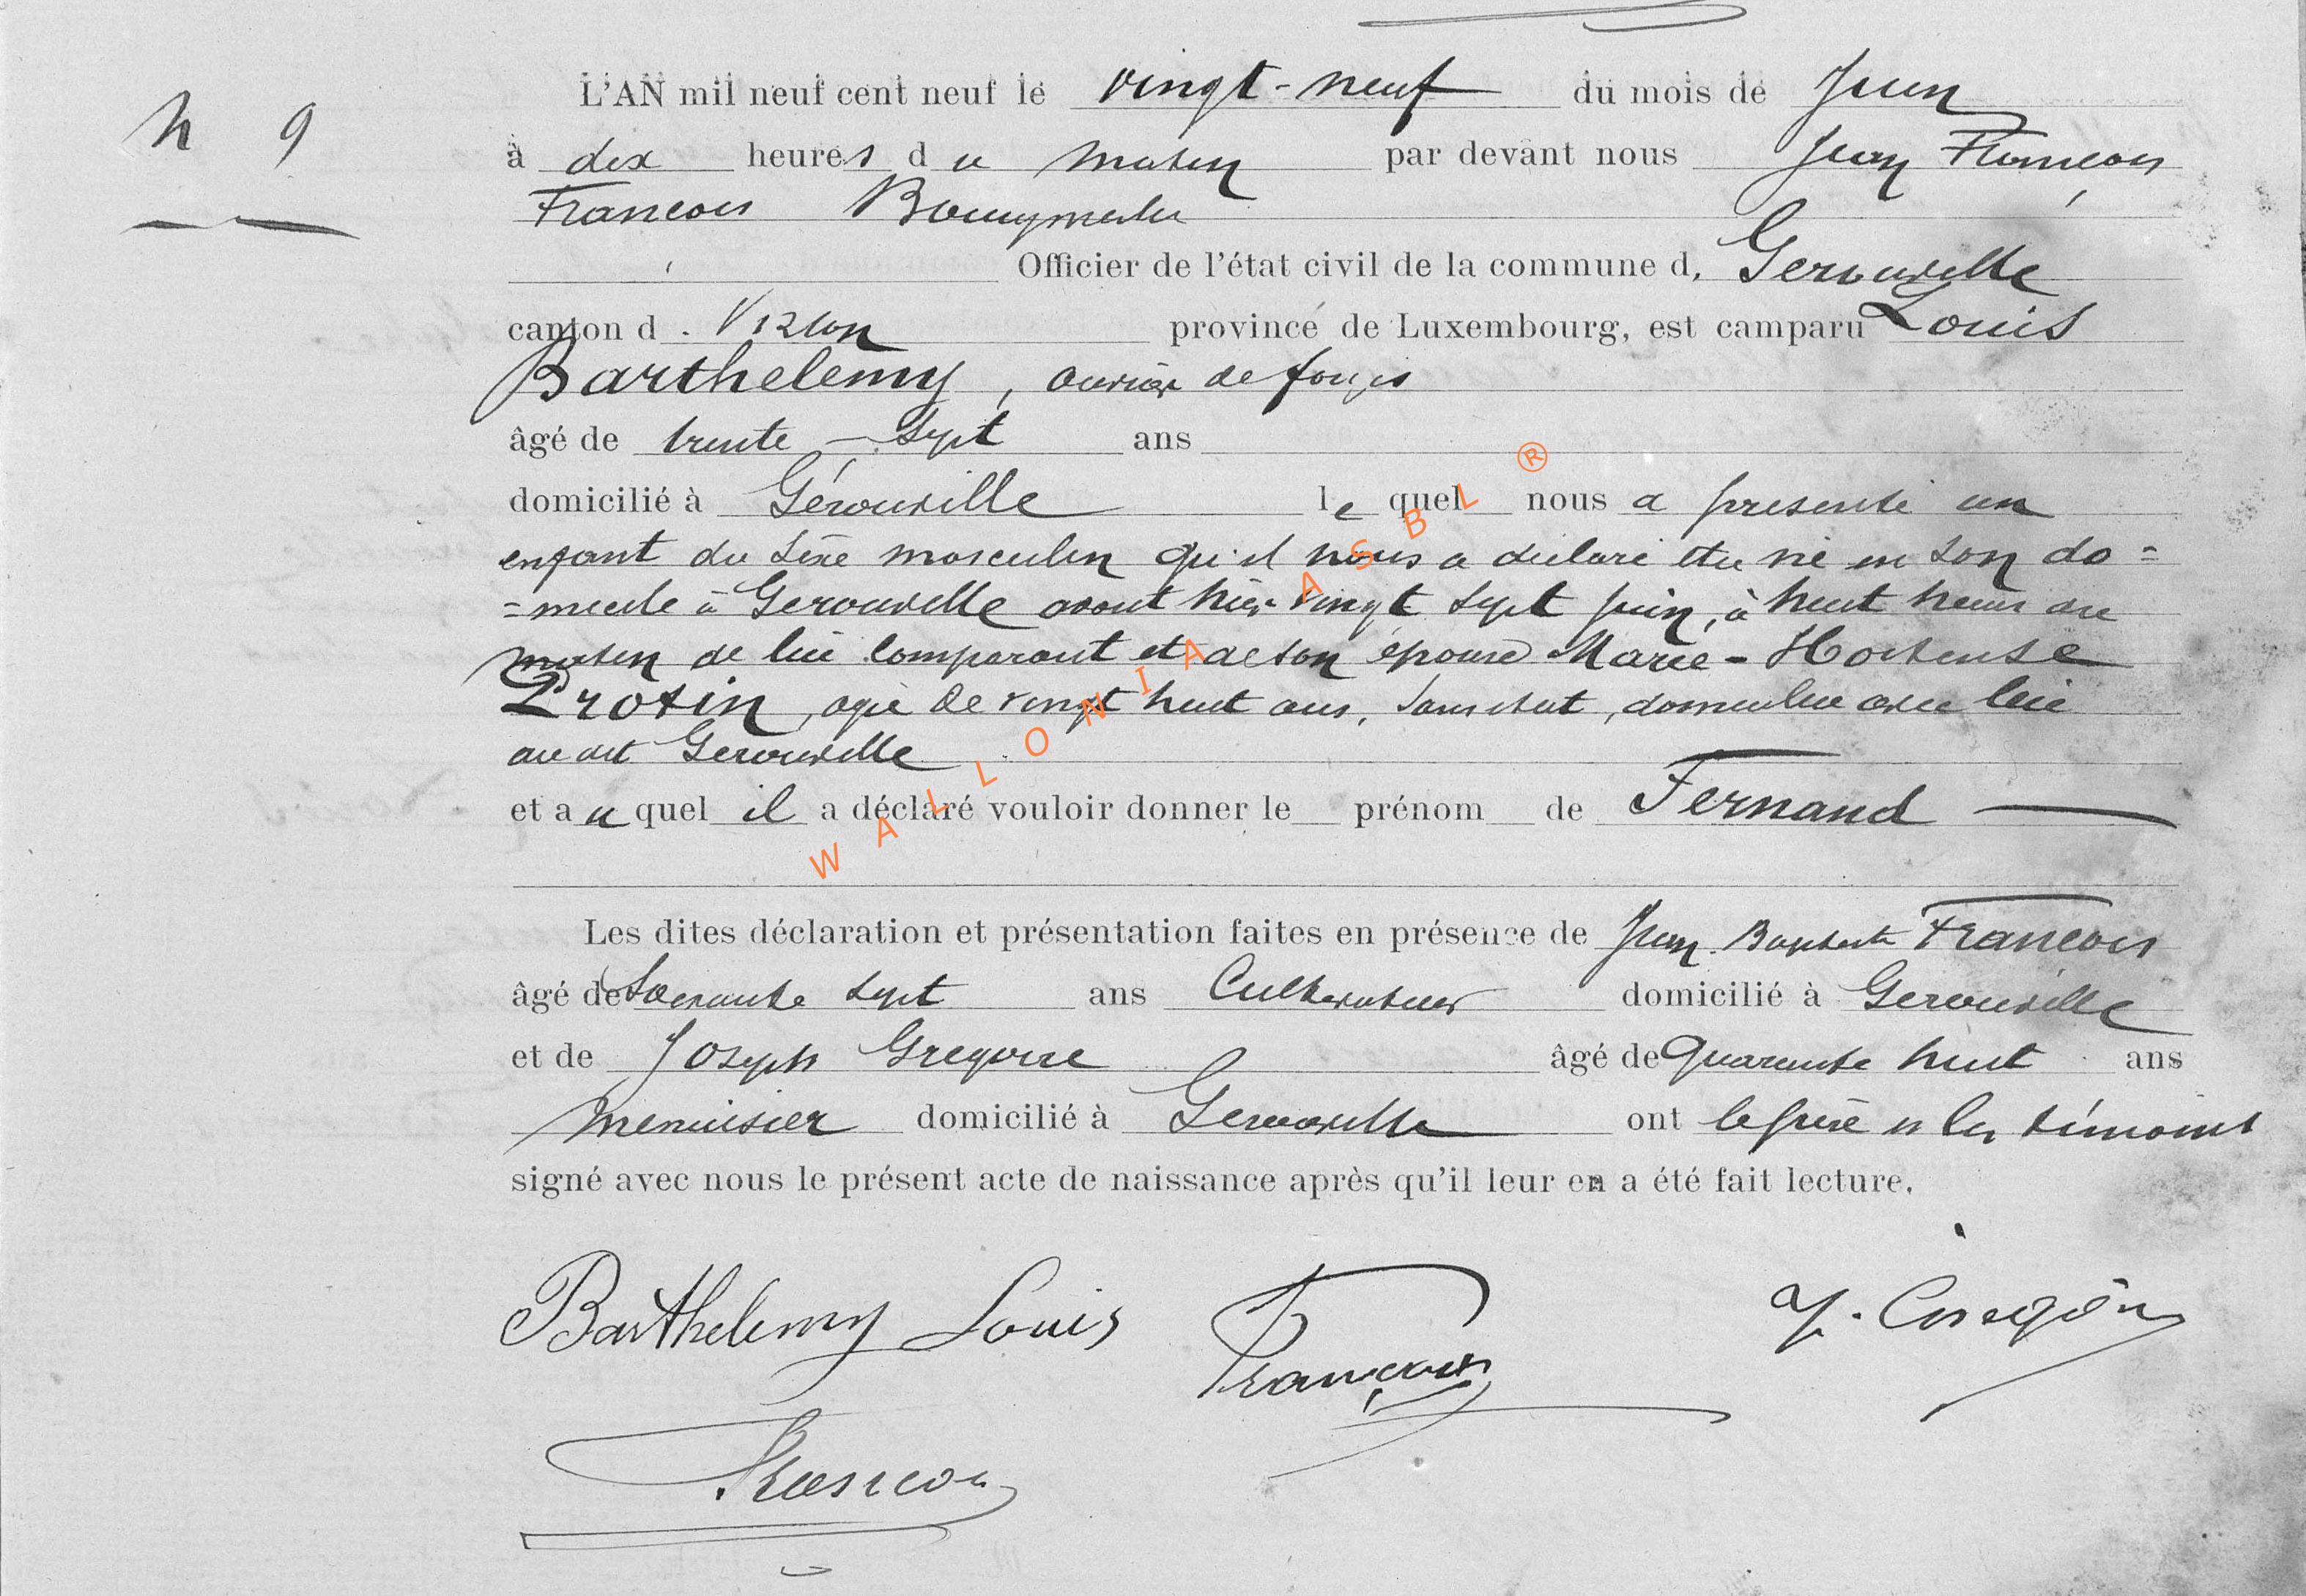 N 9
L'AN mil neuf cent neuf le vingt-neuf du mois de Juin
à dix heures du matin par devant nous Jean François
François Bourgmestre
Officier de l'état civil de la commune d, Gerouville
canton d. Virton province de Luxembourg, est camparu Louis
Barthelemy, ouvrier de forges
âgé de trente-sept ans
domicilié à Gérouville lequel nous a presenté un
enfant du sexe masculin qu'il nous a déclaré etre né en son do=
=micile à Gerouville avant hier vingt sept juin, à huit heures du
matin de lui comparant et de son épouse Marie-Hortense
Protin, agée de vingt huit ans, sans etat, domiciliee avec lui
au dit Gerouville
et auquel il a déclaré vouloir donner le prénom de Fernand
Les dites déclaration et présentation faites en présence de Jean Baptiste François
âgé de Soixante sept ans Cultivateur domicilié à Gerouville
et de Joseph Gregoire âgé de Quarante huit ans
menuisier domicilié à Gerouville ont le père et les témoins
signé avec nous le présent acte de naissance après qu'il leur en a été fait lecture.
Barthelemy Louis François J. Gregoire
François
WALLONIA ASBL ®